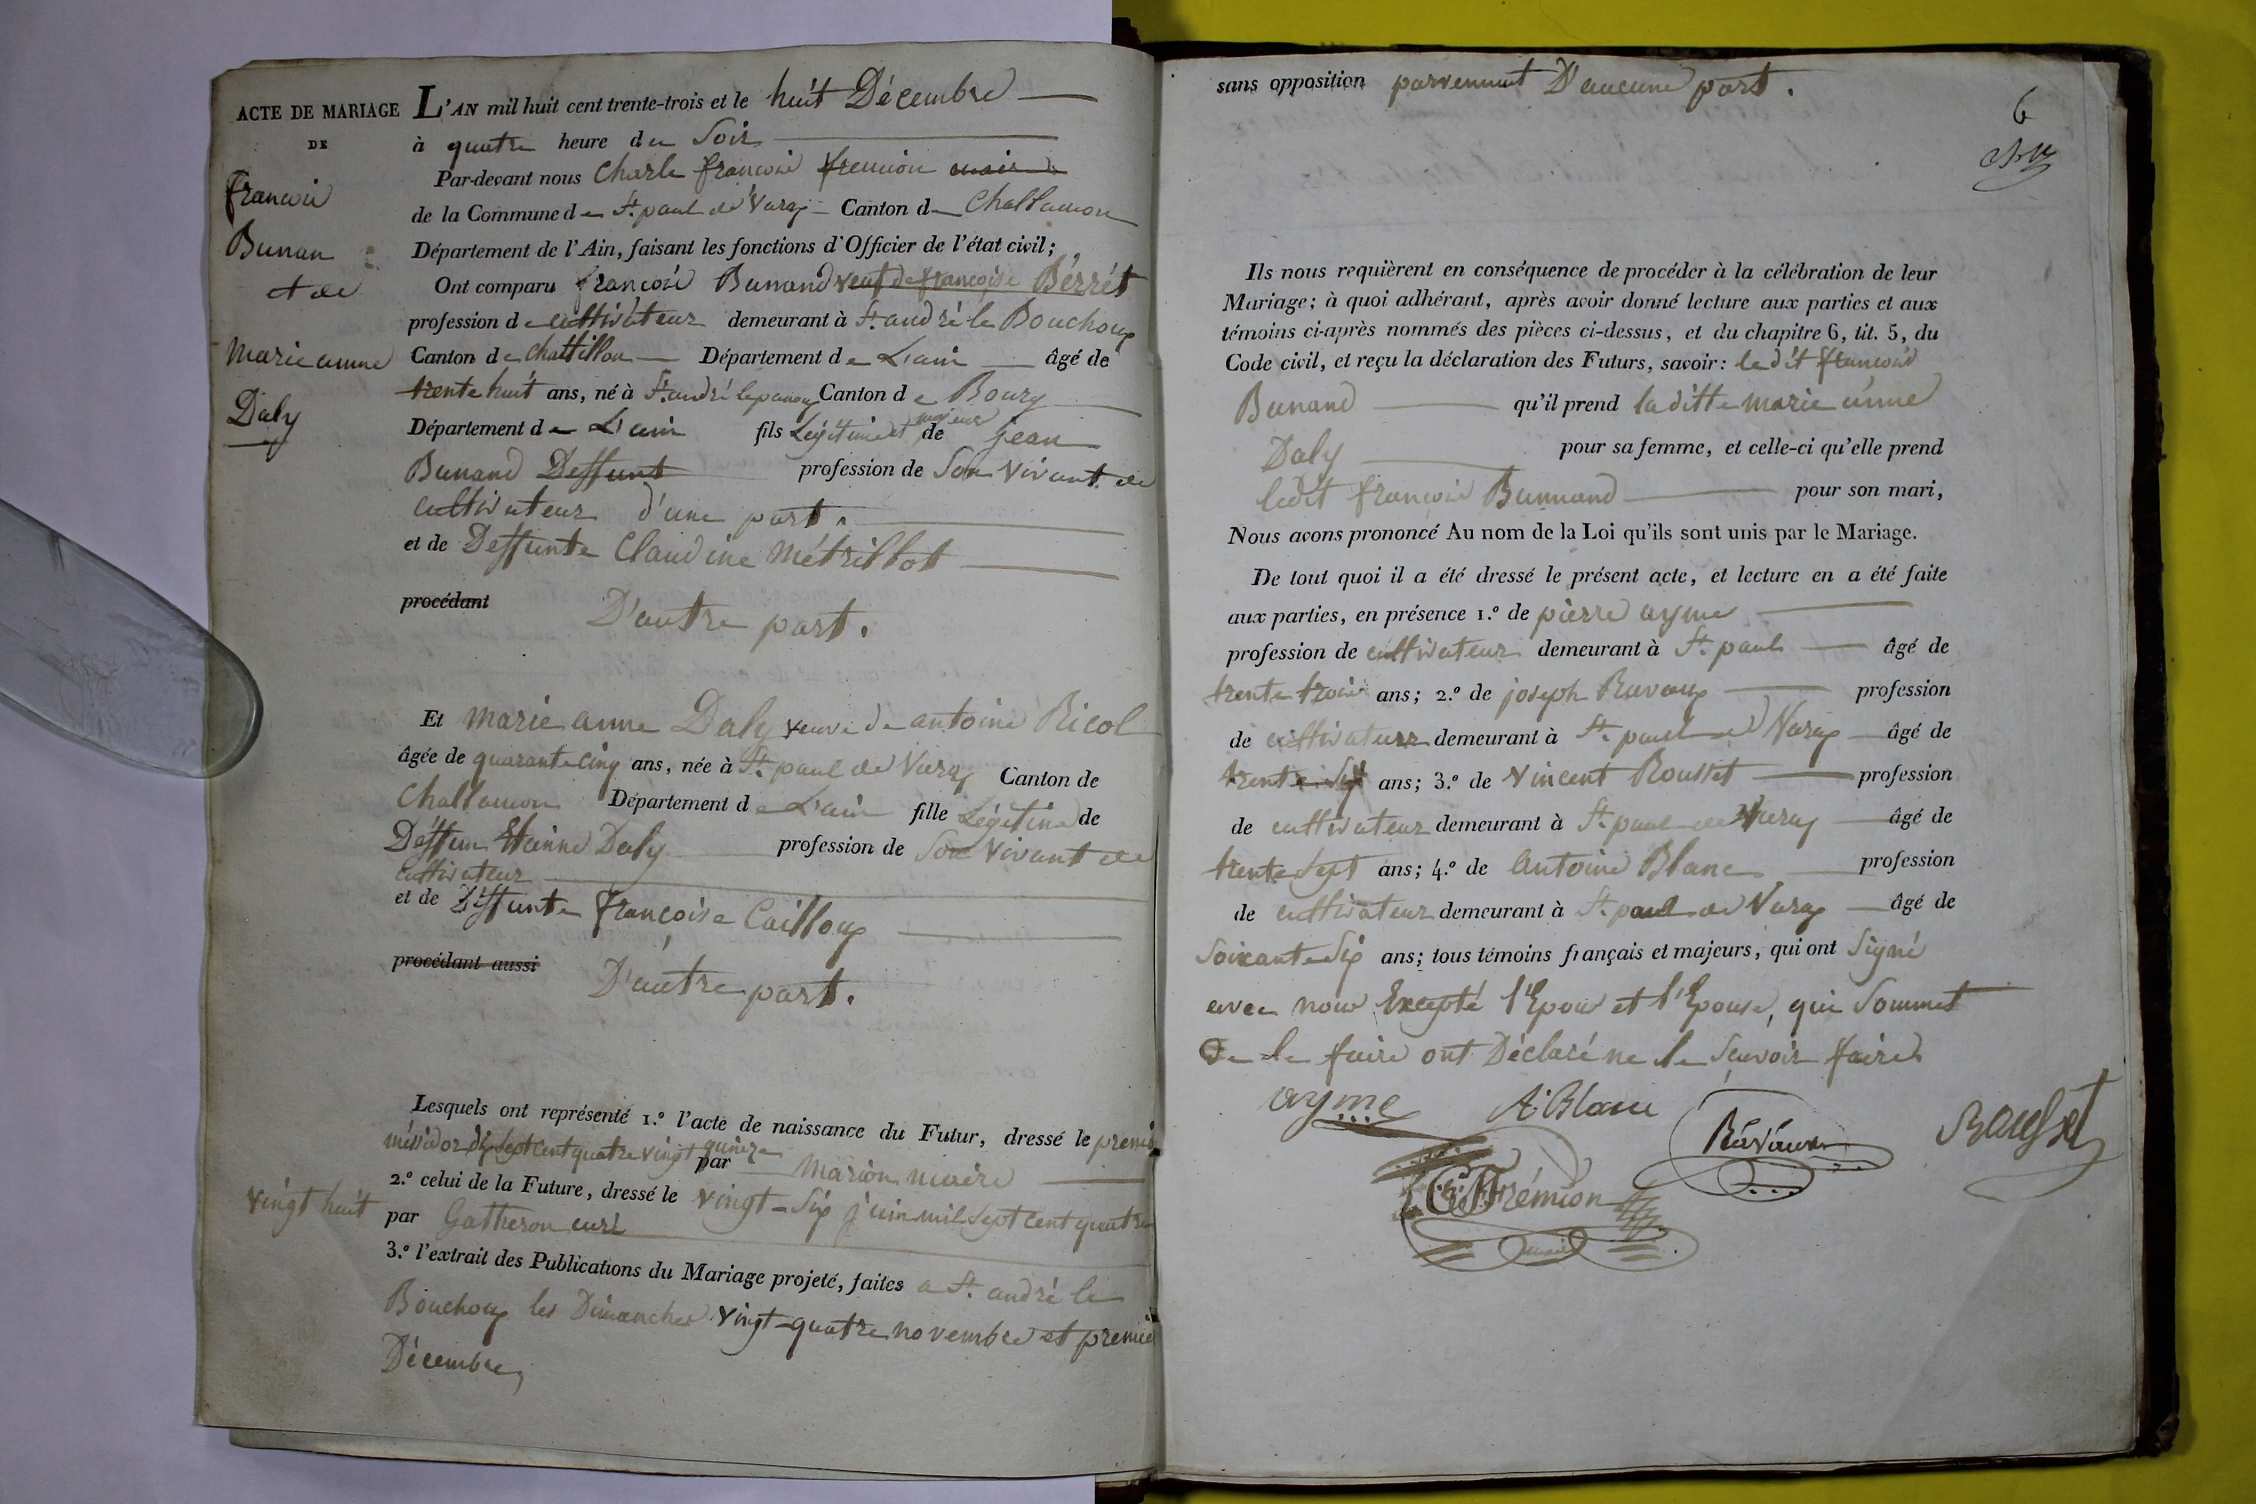 ACTE DE MARIAGE
DE
françois
Bunan
et de
Marie anne
Daly
L'AN mil huit cent trente-trois et le huit Décembre
à quatre heure du Soir
Par-devant nous Charle françois fremion maire
de la Commune de St. paul de Varax Canton de Challamon
Département de l'Ain, faisant les fonctions d'Officier de l'état civil;
Ont comparu françois Bunand veuf de françoise Bérrét
profession de cultivateur demeurant à St. andré le Bouchoux
Canton de Chattillon Département de L'ain âgé de
trente huit ans, né à St. andré lepanoux Canton de Bourg
Département de L'ain fils Légitime et majeur de jean
Bunand Deffunt profession de Son vivant de
cultivateur d'une part.
et de Deffunte Claudine Métrillot
procédant D'autre part.
Et Marie anne Daly veuve de antoine Ricol
âgée de quarante cinq ans, née à St. paul de Varax Canton de
Challamon Département de L'ain fille Légitime de
Deffun Etienne Daly profession de Son vivant de
cultivateur
et de Deffunte françoise Cailloux
procédant aussi D'autre part.
Lesquels ont représenté 1.º l'acte de naissance du Futur, dressé le premier
méssidor dix sept cent quatre vingt quinze par Marion maire
2.º celui de la Future, dressé le vingt-six juin mil sept cent quatre
vingt huit par Gatheron curé
3.º l'extrait des Publications du Mariage projeté, faites a St. andré le
Bouchoux les Dimanches vingt-quatre novembre et premier
Décembre,
sans opposition parvenant D'aucune part.
6
Ils nous requièrent en conséquence de procéder à la célébration de leur
Mariage; à quoi adhérant, après avoir donné lecture aux parties et aux
témoins ci-après nommés des pièces ci-dessus, et du chapitre 6, tit. 5, du
Code civil, et reçu la déclaration des Futurs, savoir: le dit françois
Bunand qu'il prend la ditte marie anne
Daly pour sa femme, et celle-ci qu'elle prend
ledit françois Bunnand pour son mari,
Nous avons prononcé Au nom de la Loi qu'ils sont unis par le Mariage.
De tout quoi il a été dressé le présent acte, et lecture en a été faite
aux parties, en présence 1.º de pierre ayme
profession de cultivateur demeurant à St. paul âgé de
trente trois ans; 2.º de joseph Ravaux profession
de cultivateur demeurant à St. paul de Varax âgé de
trente six ans; 3.º de Vincent Rousset profession
de cultivateur demeurant à St. paul de Varax âgé de
trente sept ans; 4.º de Antoine Blanc profession
de cultivateur demeurant à St. paul de Varax âgé de
Soixante Six ans; tous témoins français et majeurs, qui ont Signé
avec nous Excepté l'Epoux et l'Epouse, qui Sommet
De le faire ont Déclaré ne le Savoir faire
ayme A. Blanc Ravaux Rousset
Frémion
maire